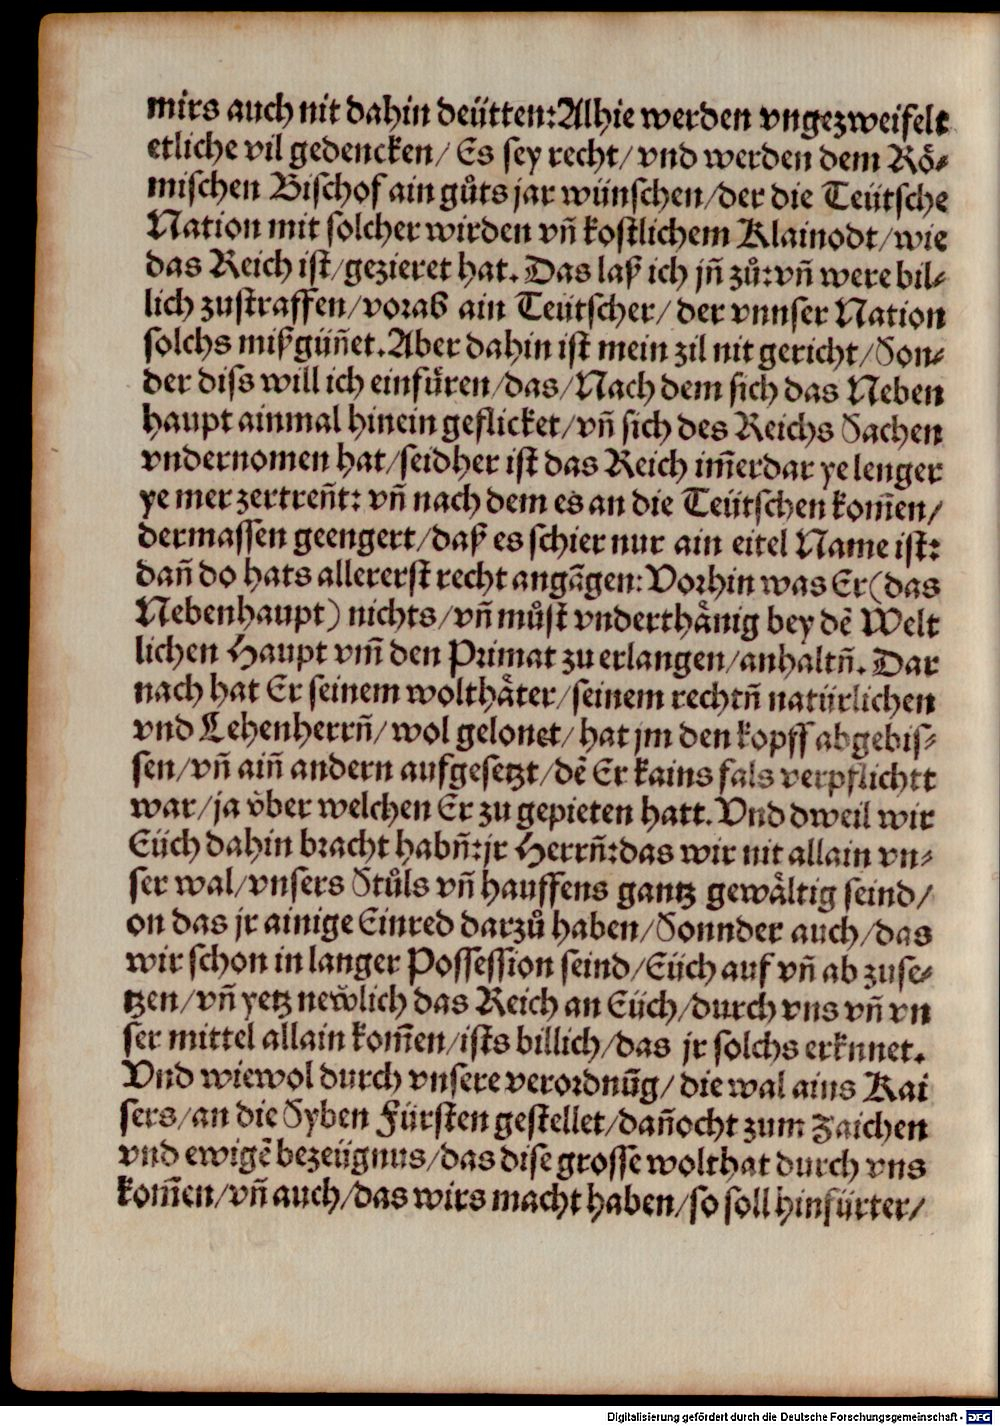 mirs auch nit dahin deütten: Alhie werden vngezweifelt
etliche vil gedencken/ Es sey recht/ vnd werden dem Rö-
mischen Bischof ain gůts jar wünschen/ der die Teütsche
Nation mit solcher wirden vñ kostlichem Klainodt/ wie
das Reich ist/ gezieret hat. Das laß ich jñ zů: vñ were bil-
lich zustraffen/ vorab ain Teütscher/ der vnnser Nation
solchs mißgüñet. Aber dahin ist mein zil nit gericht/ Son-
der diss will ich einfüren/ das/ Nach dem sich das Neben
haupt ainmal hinein geflicket/ vñ sich des Reichs Sachen
vndernomen hat/ seidher ist das Reich im̃erdar ye lenger
ye mer zertreñt: vñ nach dem es an die Teütschen kom̃en/
dermassen geengert/ daß es schier nur ain eitel Name ist:
dañ do hats allererst recht angãgen: Vorhin was Er (das
Nebenhaupt) nichts/ vñ můst vnderthänig bey dẽ Welt
lichen Haupt vm̃ den Primat zu erlangen/ anhaltñ. Dar
nach hat Er seinem wolthäter/ seinem rechtñ natürlichen
vnd Lehenherrñ/ wol gelonet/ hat jm den kopff abgebis-
sen/ vñ aiñ andern aufgesetzt/ dẽ Er kains fals verpflichtt
war/ ja vͤber welchen Er zu gepieten hatt. Vnd dweil wir
Eüch dahin bracht habñ: jr Herrñ: das wir nit allain vn-
ser wal/ vnsers Stůls vñ hauffens gantz gewältig seind/
on das jr ainige Einred darzů haben/ Sonnder auch/ das
wir schon in langer Possession seind/ Eüch auf vñ ab zuse-
tzen/ vñ yetz neẘlich das Reich an Eüch/ durch vns vñ vn
ser mittel allain kom̃en/ ists billich/ das jr solchs erknnet.
Vnd wiewol durch vnsere verordnũg/ die wal ains Kai
sers/ an die Syben Fürsten gestellet/ dañocht zum Zaichen
vnd ewigẽ bezeügnus/ das dise grosse wolthat durch vns
kom̃en/ vñ auch/ das wirs macht haben/ so soll hinfürter/
Digitalisierung gefördert durch die Deutsche Forschungsgemeinschaft - DFG